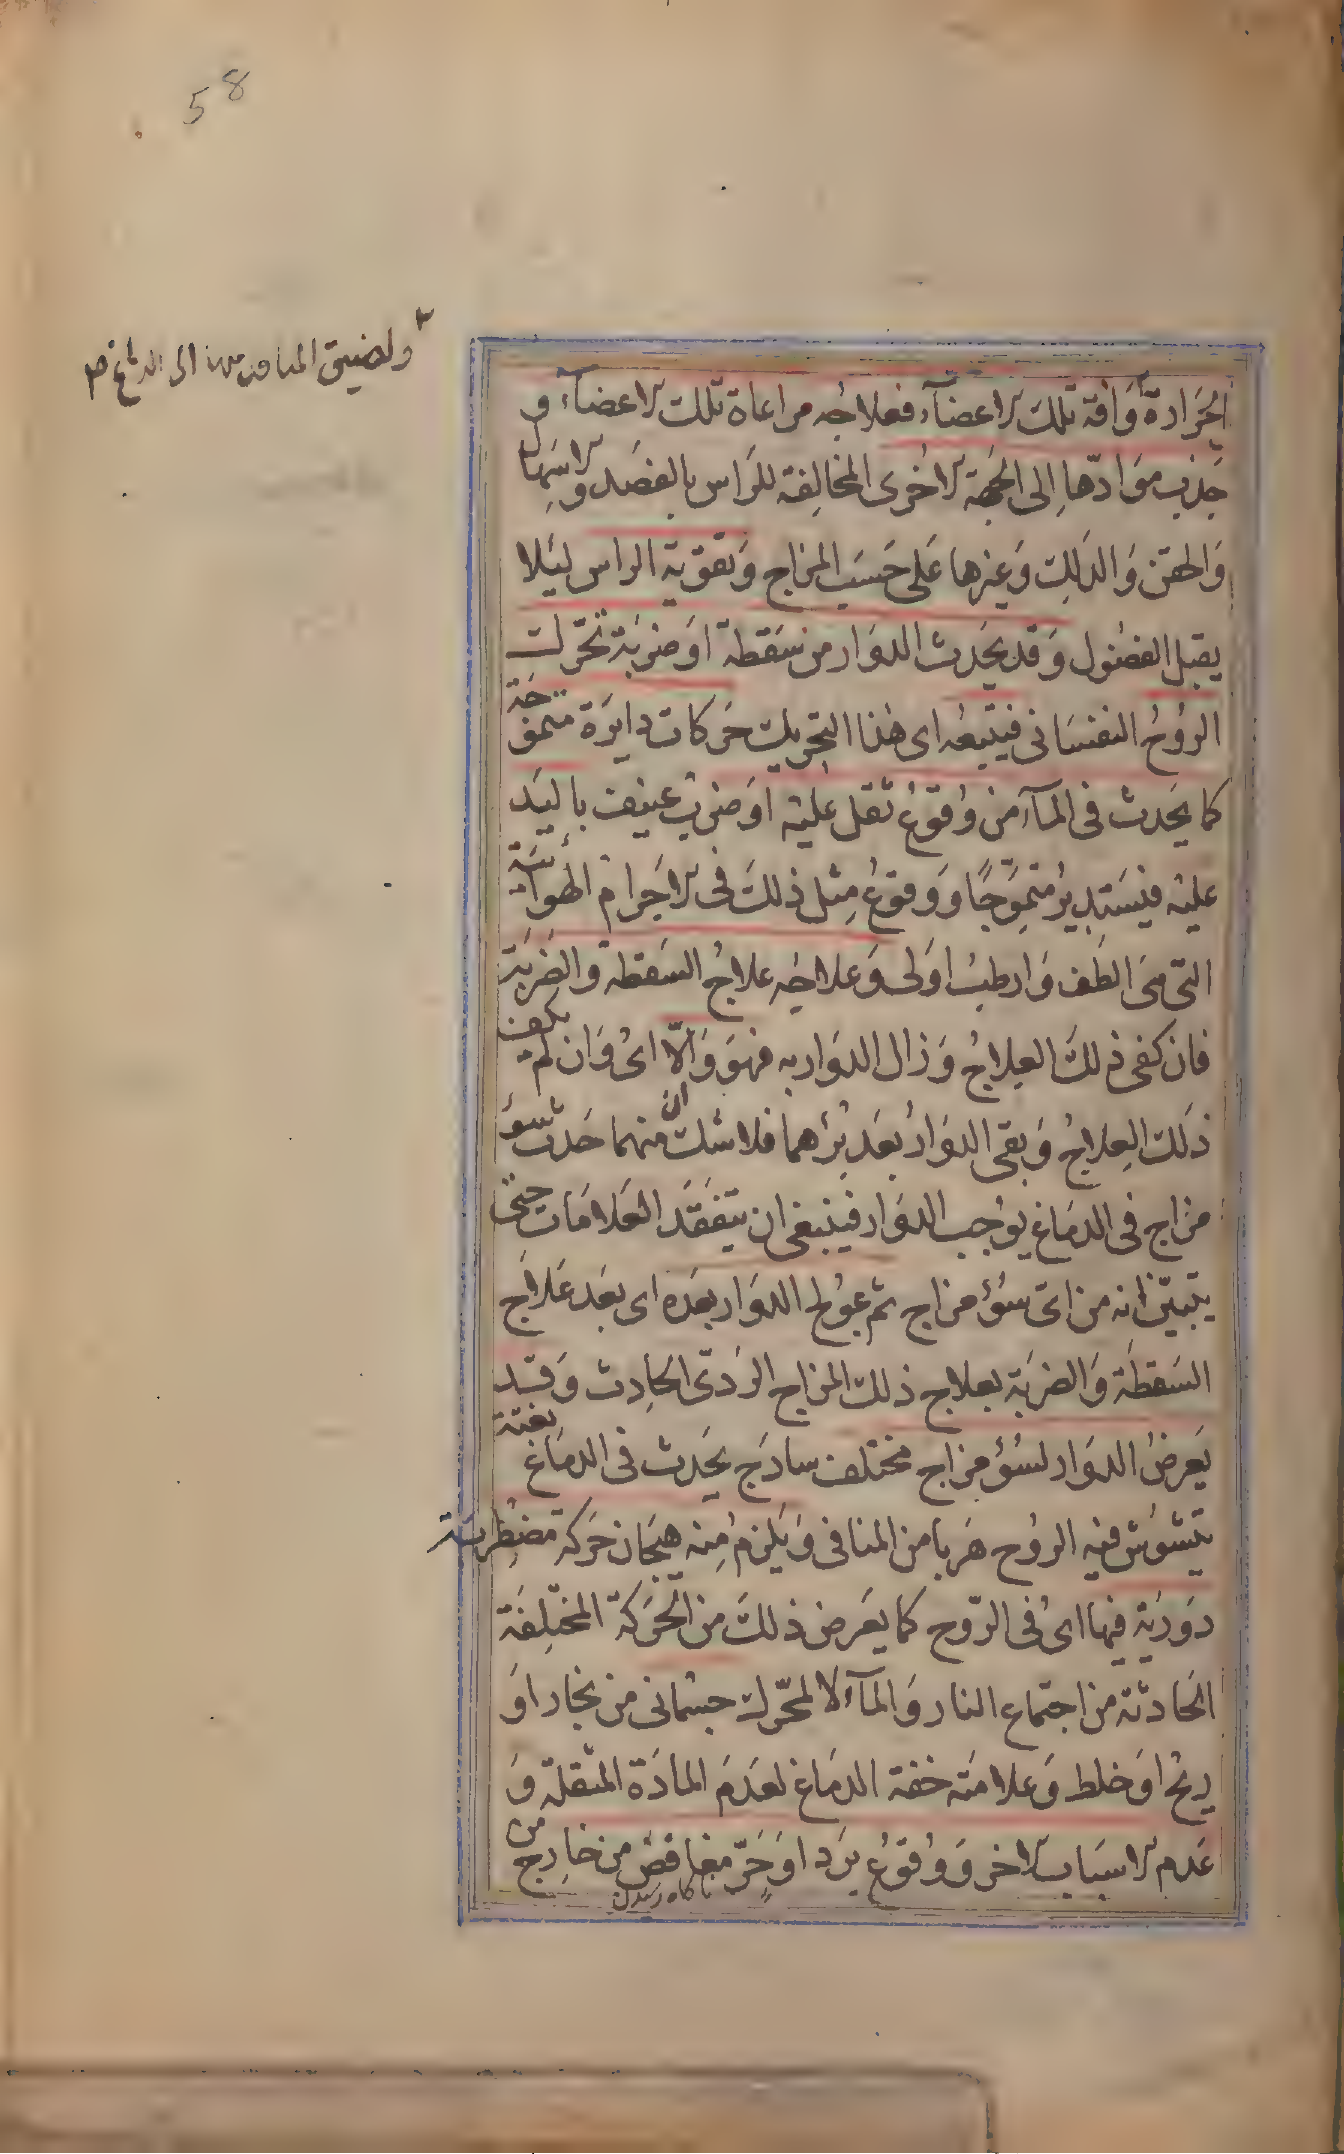 58
ولضيق المنافذ منها الى الدماغ صح
الحرارة وآفة تلك الاعضآء فعلاجه مراعاة تلك الاعضآء و
جَذب مَوَادّها اِلى الجهة الاخرى المخالِفة للرَاس بالفصد والاسهال
وَالحقن وَالدلك وَغيرها عَلى حَسَب المزاج وَتقوية الراس ليلا
يقبل الفضول وَقد يحدث الدوَار من سَقطة اوضربَة تحرّك
الرُوح النفسَانى فيتبعُه اى هذا التحريك حَركات دايرَة متموّجة
كما يحَدث فى المآء من وُقوع ثقل عليْه اوضرب عنيف باليَد
عليْه فيسَتدير متموّجًا وَوقوع مِثل ذلكَ فى الاجرام الهوآئية
التى هى الطَف وَارطب اوَلى وَعلاجه علاج السَقطة والضَربَة
فان كفى ذلكَ العِلاج وَزال الدوار به فهوَ وَالّا اىْ وَان لم يكف
ذلَك العِلاج وَبقى الدوَار بعَد بُرْئهما فلا شك ان منهما حَدث سوء
مزاج فى الدمَاغ يوُجب الدوَار فينبغى ان يتفقّد العَلامَات حتى
يتبيّن انه من اىّ سُوء مزاج ثم عوُلج الدوَار بعَده اى بعَد عَلاج
السَقطَة وَالضربَة بعلاج ذلك المزاج الردىّ الحَادِث وَقد
يَعرضُ الدوَار لسُوء مزاج مختلف ساذج يحَدث فى الدمَاغ بغتة
يتشَوّش فيه الروُح هَربا من المنافى وَيَلزمُ مِنه هيَجان حَركة مضطربة
دَوريّة فيها اىُ فى الرّوح كما يعَرض ذلكَ من الحَركة المختلِفَة
الحَادثة من اجتماع النار وَالمآء لا لمحّرك جسمانى من بخار اوَ
ريْح اوَخلط وَعلامَته خفة الدمَاغ لعَدَم المادَة المثقلة وَ
عَدم الاسَباب الاخر وَوُقوُع برَد اوَحَرّ مغافِض من خارج من
ناكاه رسيدن